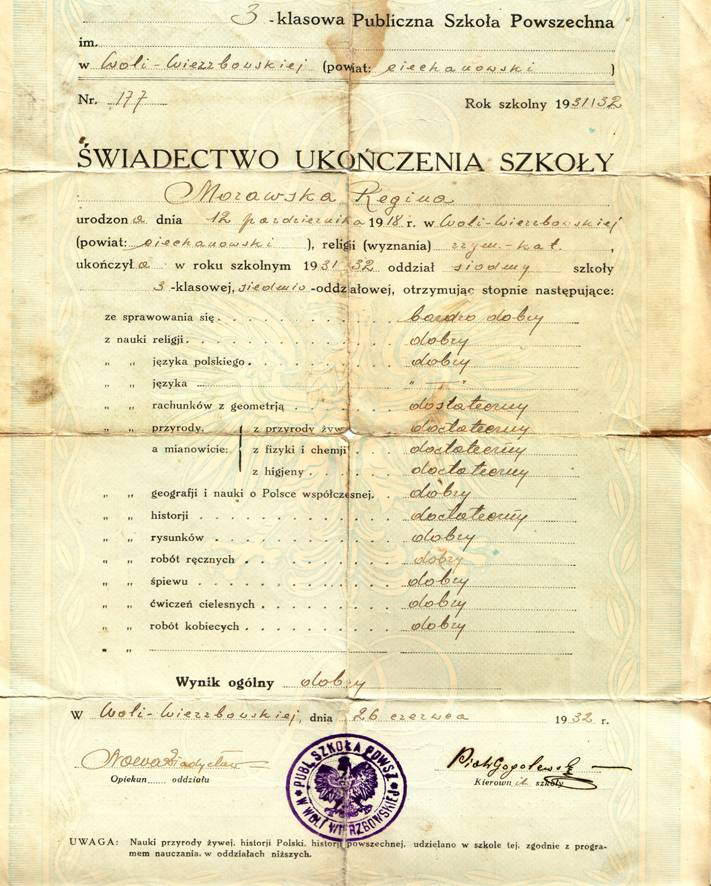 3 -klasowa Publiczna Szkoła Powszechna
im.
w Woli-Wierzbowskiej (powiat: ciechanowski )
Nr. 177 Rok szkolny 1931/32
ŚWIADECTWO UKOŃCZENIA SZKOŁY
Morawska Regina
urodzona dnia 12 października 1918 r. w Woli-Wierzbowskiej
(powiat: ciechanowski ), religji (wyznania) rzym.-kat. ,
ukończyła w roku szkolnym 1931/32 oddział siódmy szkoły
3 -klasowej, siedmio -oddziałowej, otrzymując stopnie następujące:
ze sprawowania się bardzo dobry
z nauki religji dobry
„ „ języka polskiego dobry
„ „ języka " — "
„ „ rachunków z geometrją dostateczny
„ „ przyrody, z przyrody żyw dostateczny
a mianowicie: z fizyki i chemji dostateczny
z higjeny dostateczny
„ „ geografji i nauki o Polsce współczesnej dobry
„ „ historji dostateczny
„ „ rysunków dobry
„ „ robót ręcznych dobry
„ „ śpiewu dobry
„ „ ćwiczeń cielesnych dobry
„ „ robót kobiecych dobry
„ „
Wynik ogólny dobry
W Woli-Wierzbowskiej, dnia 26 czerwca 1932 r.
Opiekun oddziału Kierownik szkoły
PUBL. SZKOŁA POWSZ. W WOLI WIERZBOWSKIEJ
UWAGA: Nauki przyrody żywej, historji Polski, historji powszechnej, udzielano w szkole tej, zgodnie z progra-
mem nauczania, w oddziałach niższych.